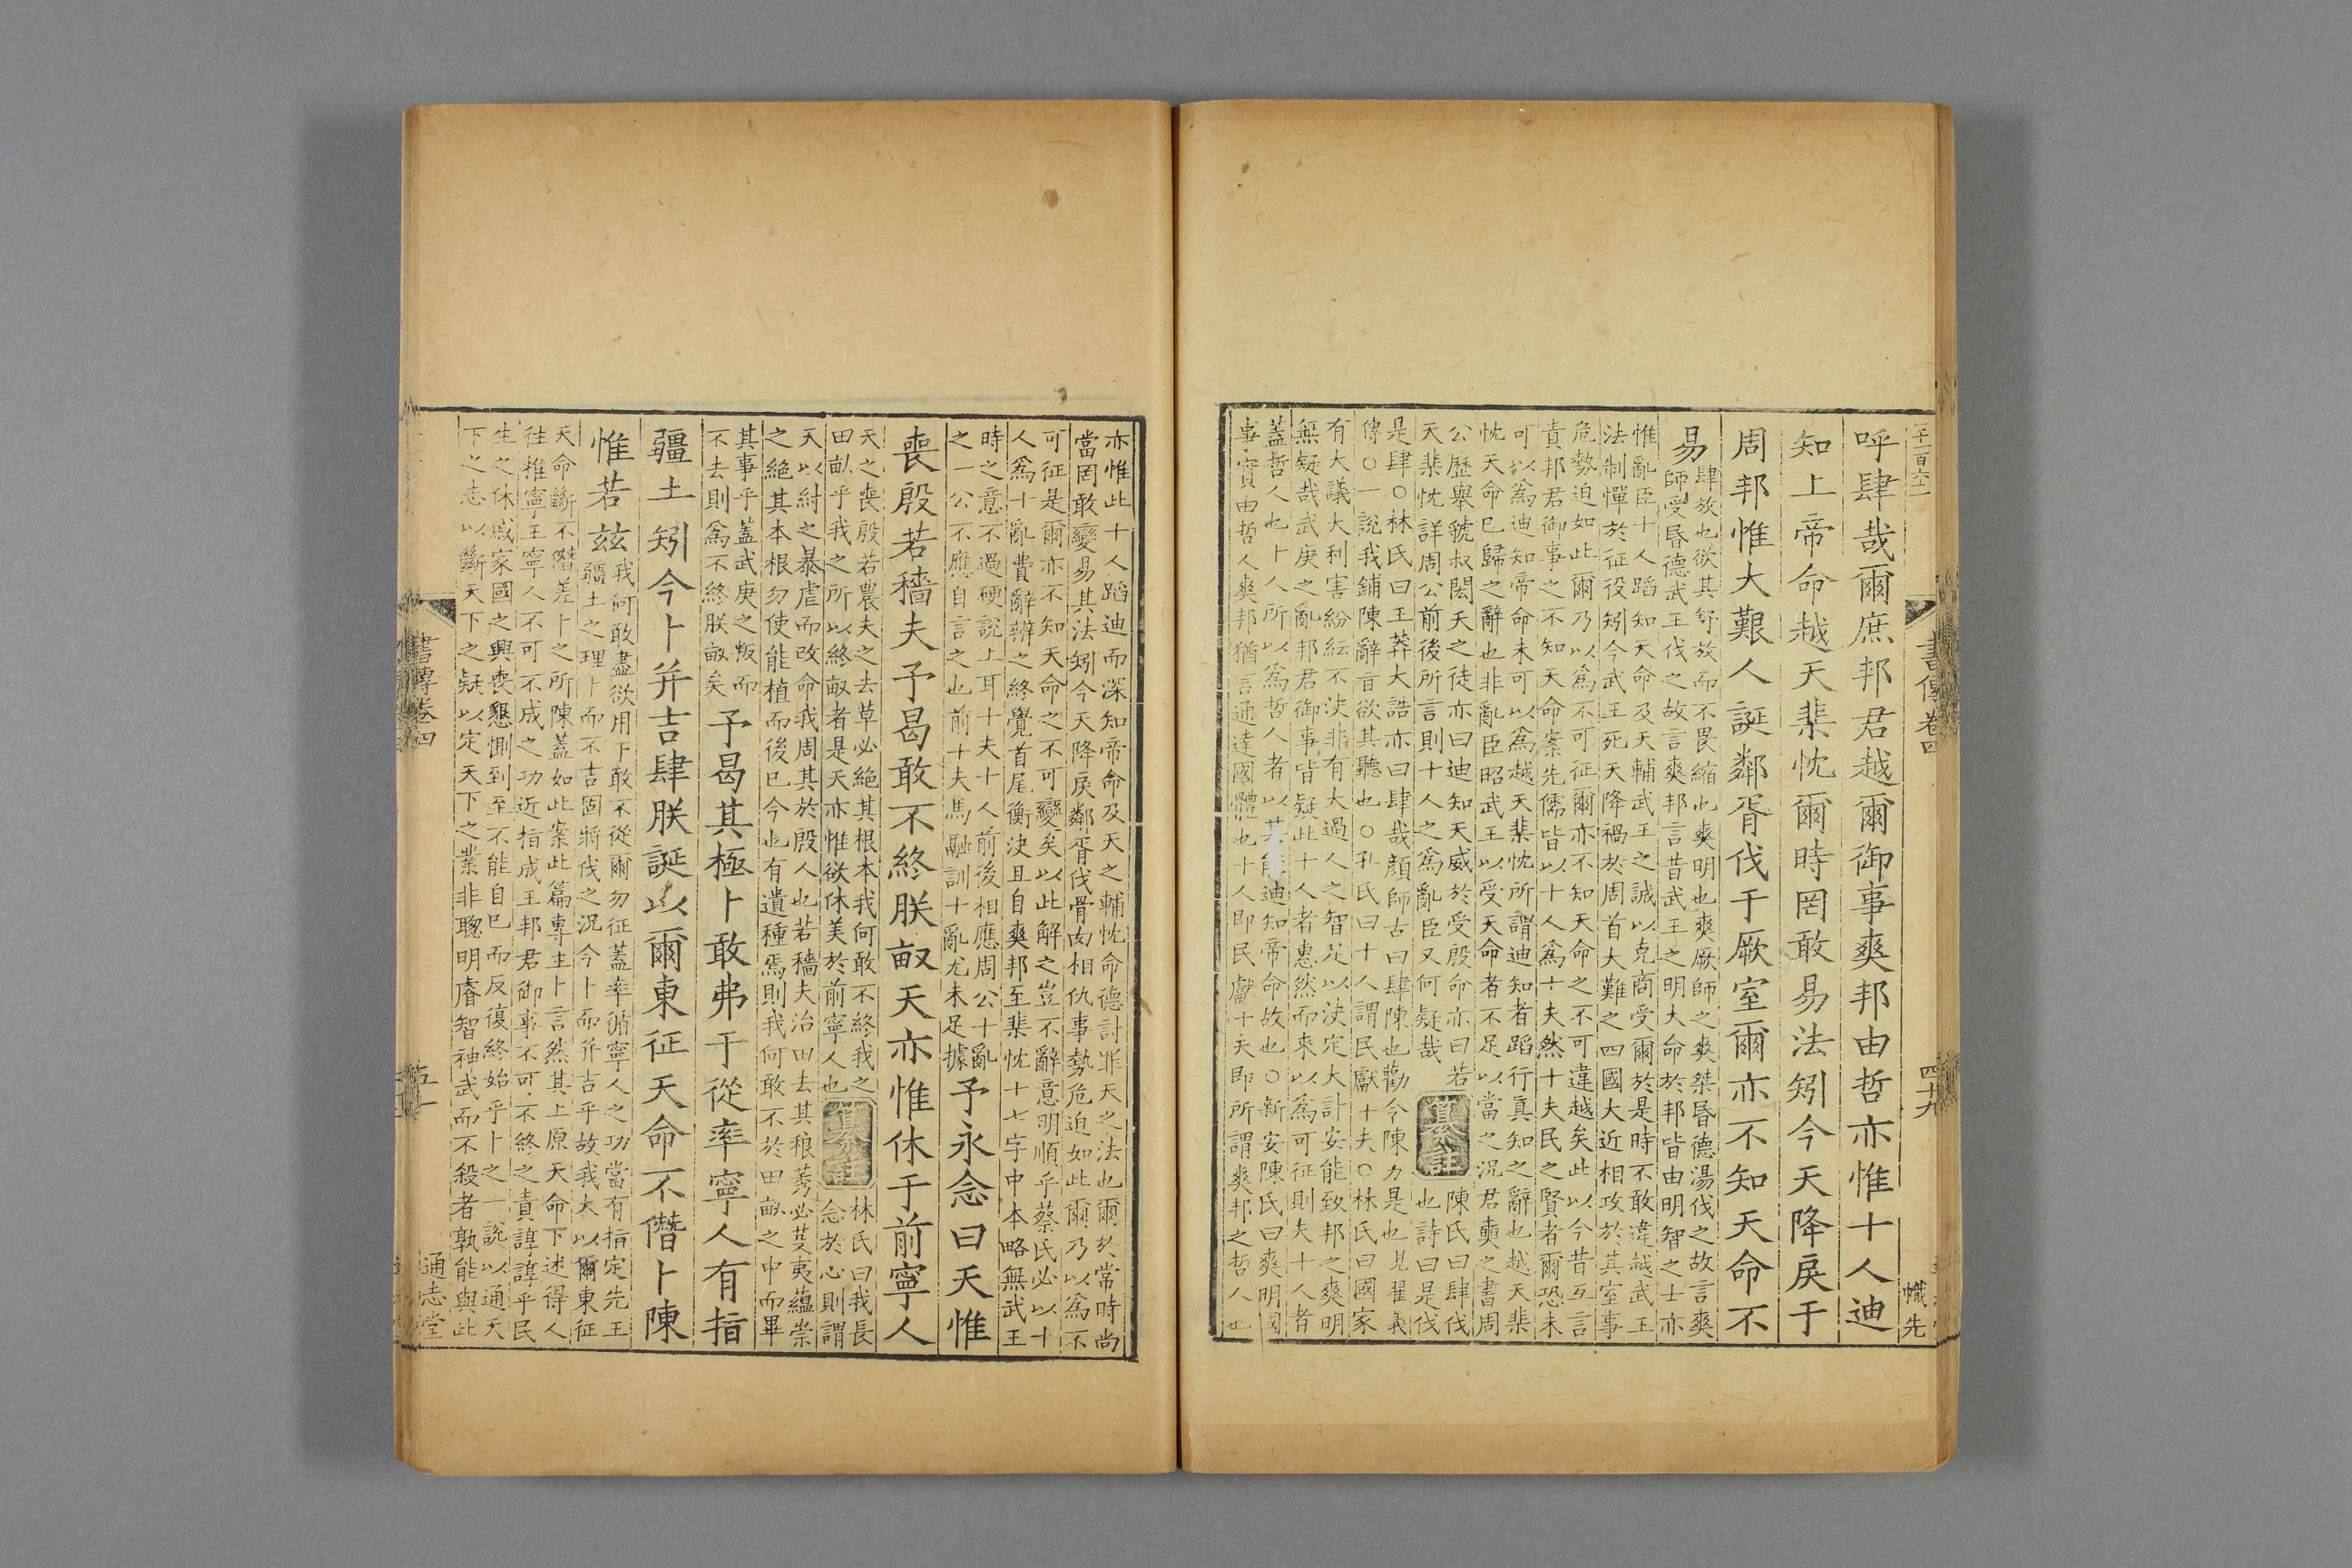 書傳卷四
四十九
幟先
呼肆哉爾庶邦君越爾御事爽邦由哲亦惟十人迪
知上帝命越天棐忱爾時罔敢易法矧今天降戾于
周邦惟大艱人誕鄰胥伐于厥室爾亦不知天命不
易
肆放也欲其舒放而不畏縮也爽明也爽厥師之爽桀昏德湯伐之故言爽
師受昏德武王伐之故言爽邦言昔武王之明大命於邦皆由明智之士亦
惟亂臣十人蹈知天命及天輔武王之誠以克商受爾於是時不敢違越武王
法制憚於征役矧今武王死天降禍於周首大難之四國大近相攻於其室事
危勢迫如此爾乃以為不可征爾亦不知天命之不可違越矣此以今昔互言
責邦君御事之不知天命案先儒皆以十人為十夫然十夫民之賢者爾恐未
可以為迪知帝命未可以為越天棐忱所謂迪知者蹈行真知之辭也越天棐
忱天命已歸之辭也非亂臣昭武王以受天命者不足以當之況君奭之書周
公歷舉虢叔閎夭之徒亦曰迪知天威於受殷命亦曰若
天棐忱詳周公前後所言則十人之為亂臣又何疑哉
纂註
陳氏曰肆伐
也詩曰是伐
是肆○林氏曰王莽大誥亦曰肆哉顏師古曰肆陳也勸今陳力是也見翟義
傳○一說我鋪陳辭言欲其聽也○孔氏曰十人謂民獻十夫○林氏曰國家
有大議大利害紛紜不決非有大過人之智足以決定大計安能致邦之爽明
無疑哉武庚之亂邦君御事皆疑此十人者惠然而來以為可征則夫十人者
蓋哲人也十人所以為哲人者以其能迪知帝命故也○新安陳氏曰爽明國
事實由哲人爽邦猶言通達國體也十人即民獻十夫即所謂爽邦之哲人也
亦惟此十人蹈迪而深知帝命及天之輔忱命德討罪天之法也爾於常時尚
當罔敢變易其法矧今天降戾鄰胥伐骨肉相仇事勢危迫如此爾乃以為不
可征是爾亦不知天命之不可變矣以此解之豈不辭意明順乎蔡氏必以十
人為十亂費辭辨之終覺首尾衡決且自爽邦至棐忱十七字中本略無武王
時之意不過硬說上耳十夫十人前後相應周公十亂
之一公不應自言之也前十夫馬融訓十亂尤未足據
予永念曰天惟
喪殷若穡夫予曷敢不終朕畝天亦惟休于前寧人
天之喪殷若農夫之去草必絕其根本我何敢不終我之
田畝乎我之所以終畝者是天亦惟欲休美於前寧人也
纂註
林氏曰我長
念於心則謂
天以紂之暴虐而改命我周其於殷人也若穡夫治田去其稂莠必芟夷蘊崇
之絕其本根勿使能植而後已今也有遺種焉則我何敢不於田畝之中而畢
其事乎蓋武庚之叛而
不去則為不終朕畝矣
予曷其極卜敢弗于從率寧人有指
疆土矧今卜并吉肆朕誕以爾東征天命不僭卜陳
惟若茲
我何敢盡欲用卜敢不從爾勿征蓋率循寧人之功當有指定先王
疆土之理卜而不吉固將伐之況今卜而并吉乎故我大以爾東征
天命斷不僭差卜之所陳蓋如此案此篇專主卜言然其上原天命下述得人
往推寧王寧人不可不成之功近指成王邦君御事不可不終之責諄諄乎民
生之休戚家國之興喪懇惻到至不能自已而反復終始乎卜之一說以通天
下之志以斷天下之疑以定天下之業非聰明睿智神武而不殺者孰能與此
書傳卷四
通志堂